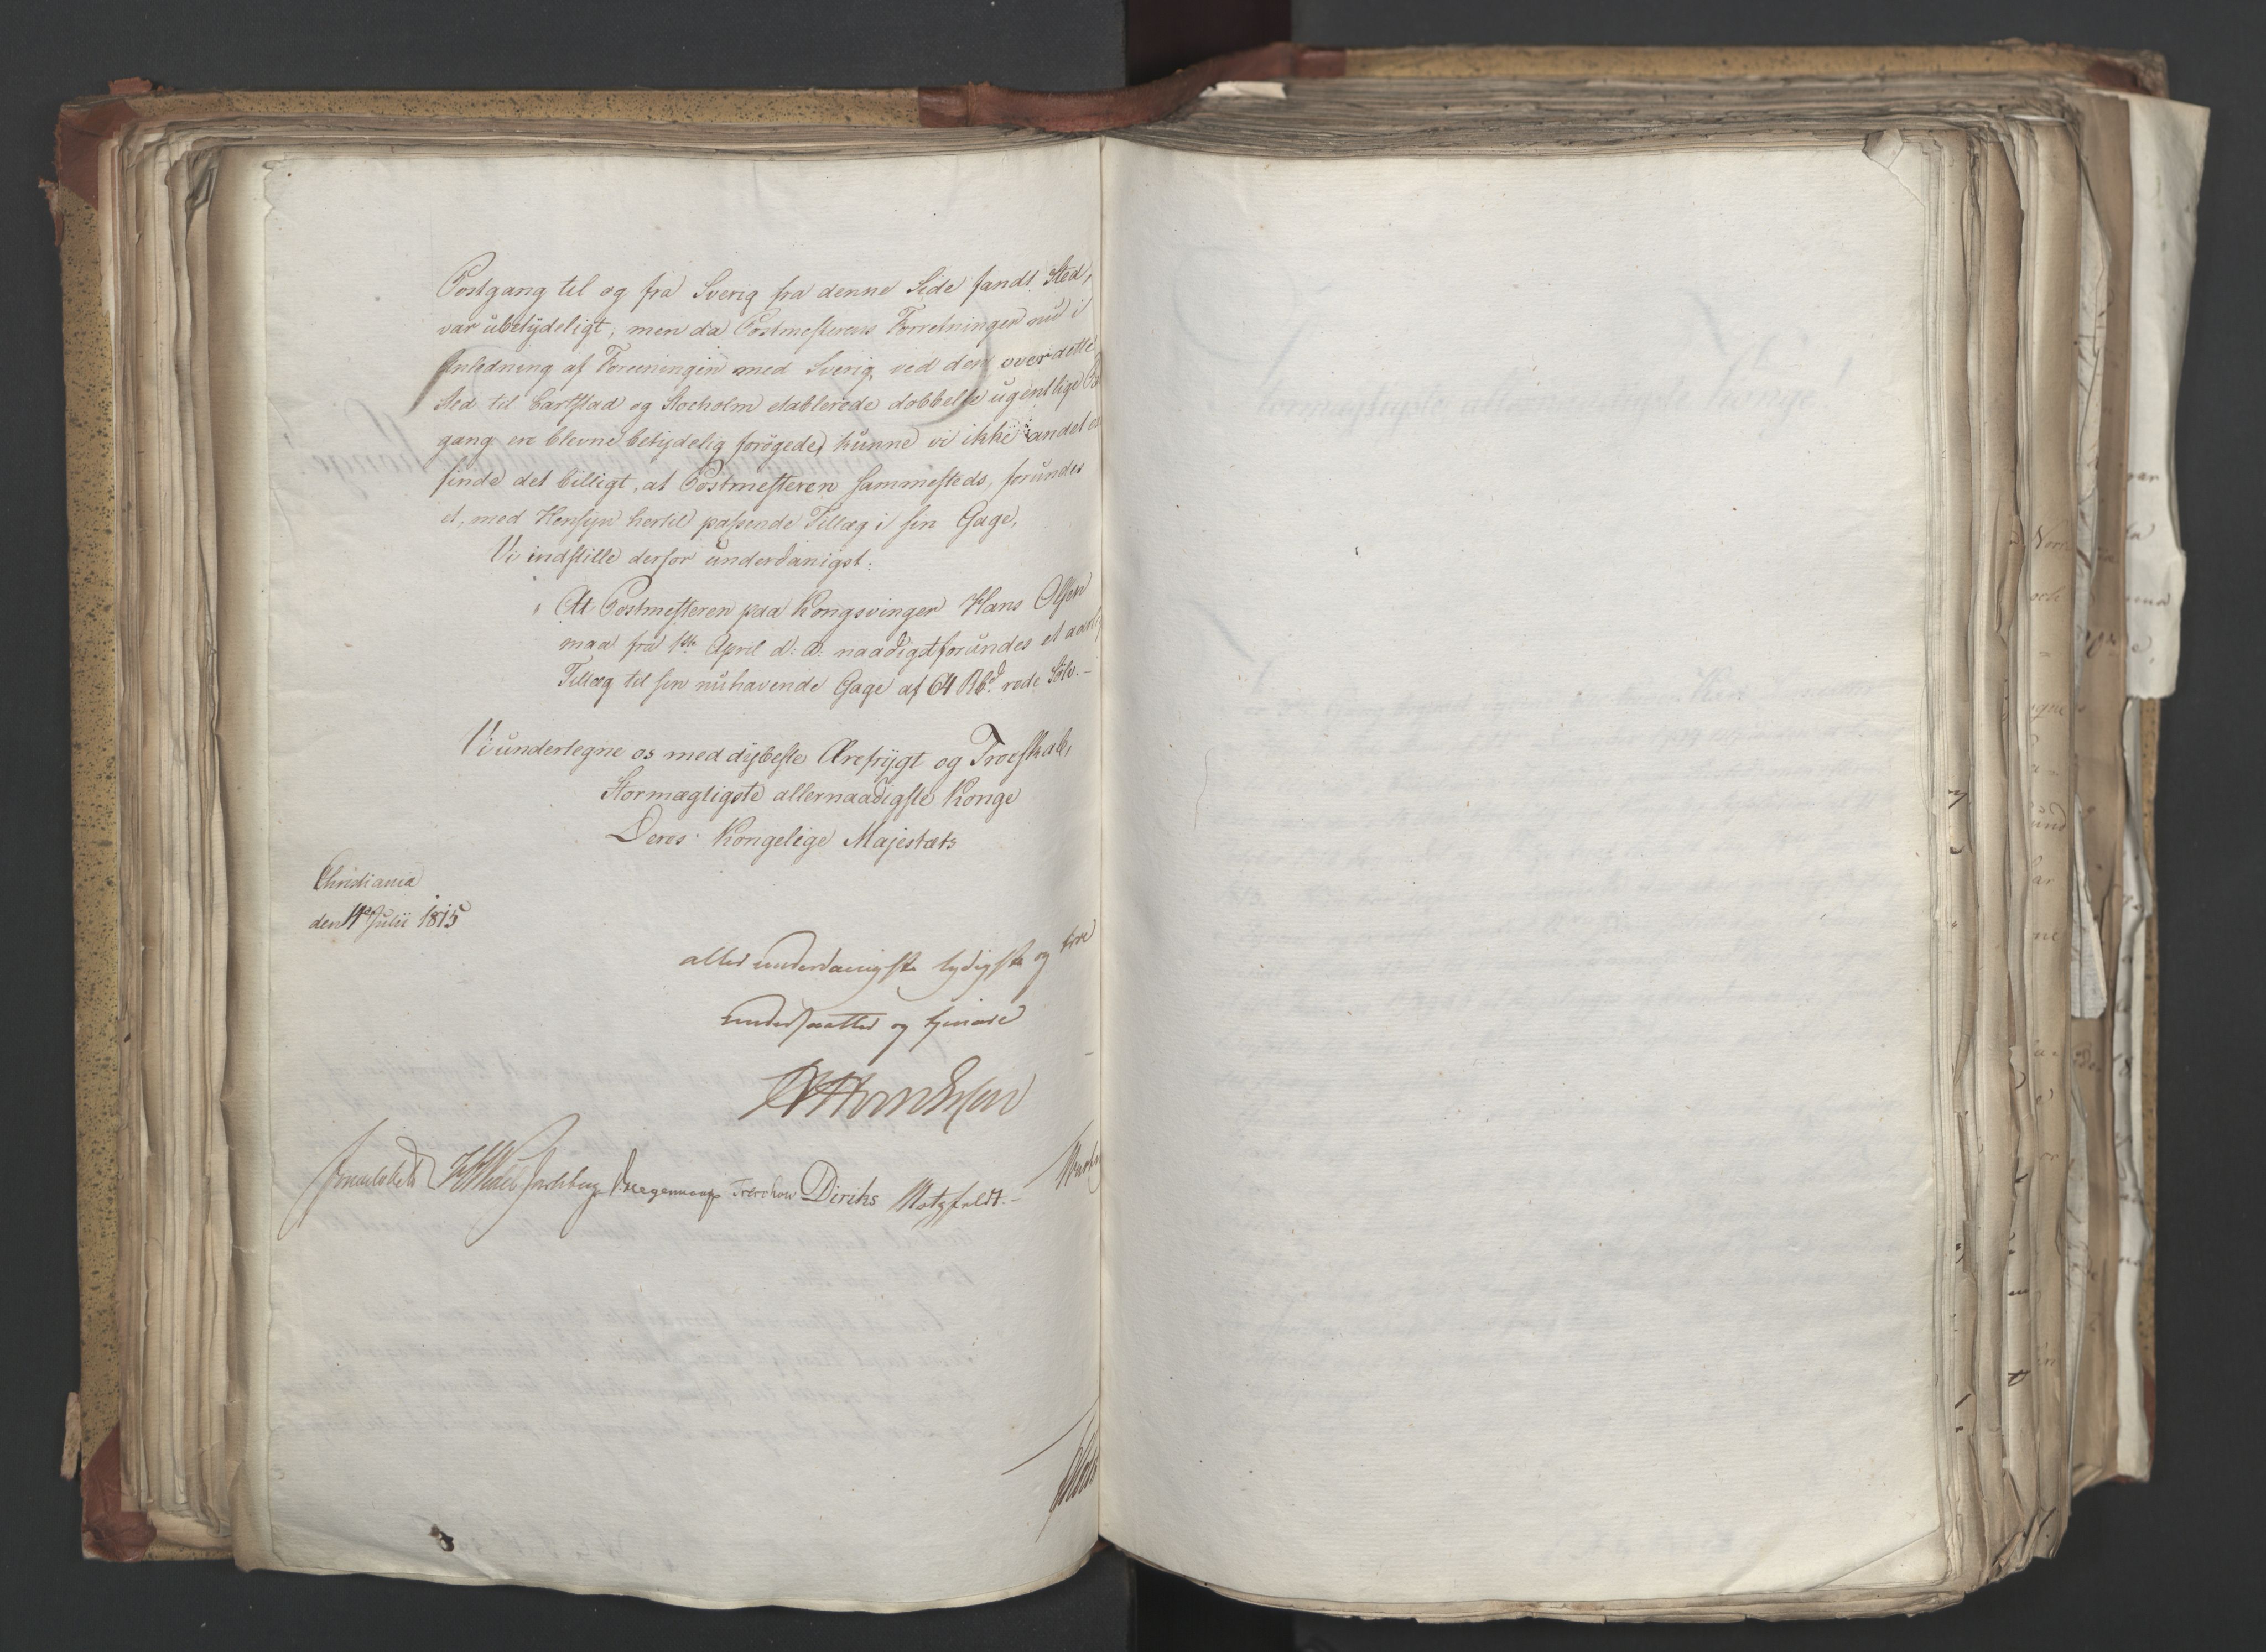 Postgang til og fra Sverig fra denne Side fandt Sted,
var ubetydeligt; men da Postmesterens Forretninger nu i
Anledning af Foreningen med Sverig, ved den over dette
Sted til Carlstad og Stocholm etablerede dobbelte ugentlige
gang ere blevne betydelig forøgede, kunne vi ikke andet
finde det billigt, at Postmesteren sammesteds, forundes
et, med Hensyn hertil passende Tillæg i sin Gage,
Vi indstille derfor underdanigst:
At Postmesteren paa Kongsvinger Hans Olsen
maa fra 1ste April d: A: naadigst forundes et
Tillæg til sin nuhavende Gage af 64 Rbd. rede Sølv.-
Vi undertegne os med dybeste Ærefrygt og Troeskab,
Stormægtigste allernaadigste Konge
Deres Kongelige Majestæts
Christiania
den Julii 1815
allerunderdanigste lydigste og troe
undersaatter og tjenere
Treschow Diriks Motzfeldt.-